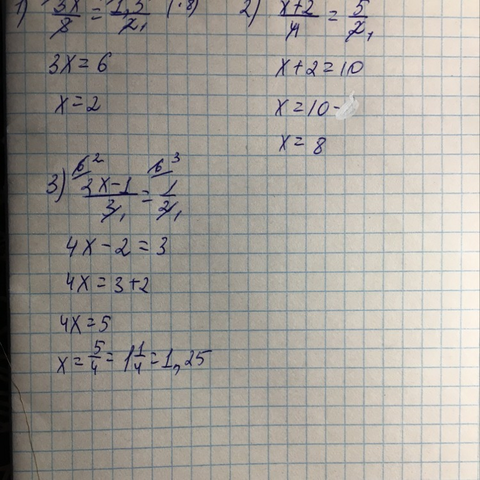 1) 3x/8 = 1,5/2 (·8)
3x=6
x=2
2) x+2/4 = 5/2
x+2=10
x=10-
x=8
3) 2x-1/3 = 1/2
4x-2=3
4x=3+2
4x=5
x=5/4=1 1/4=1,25